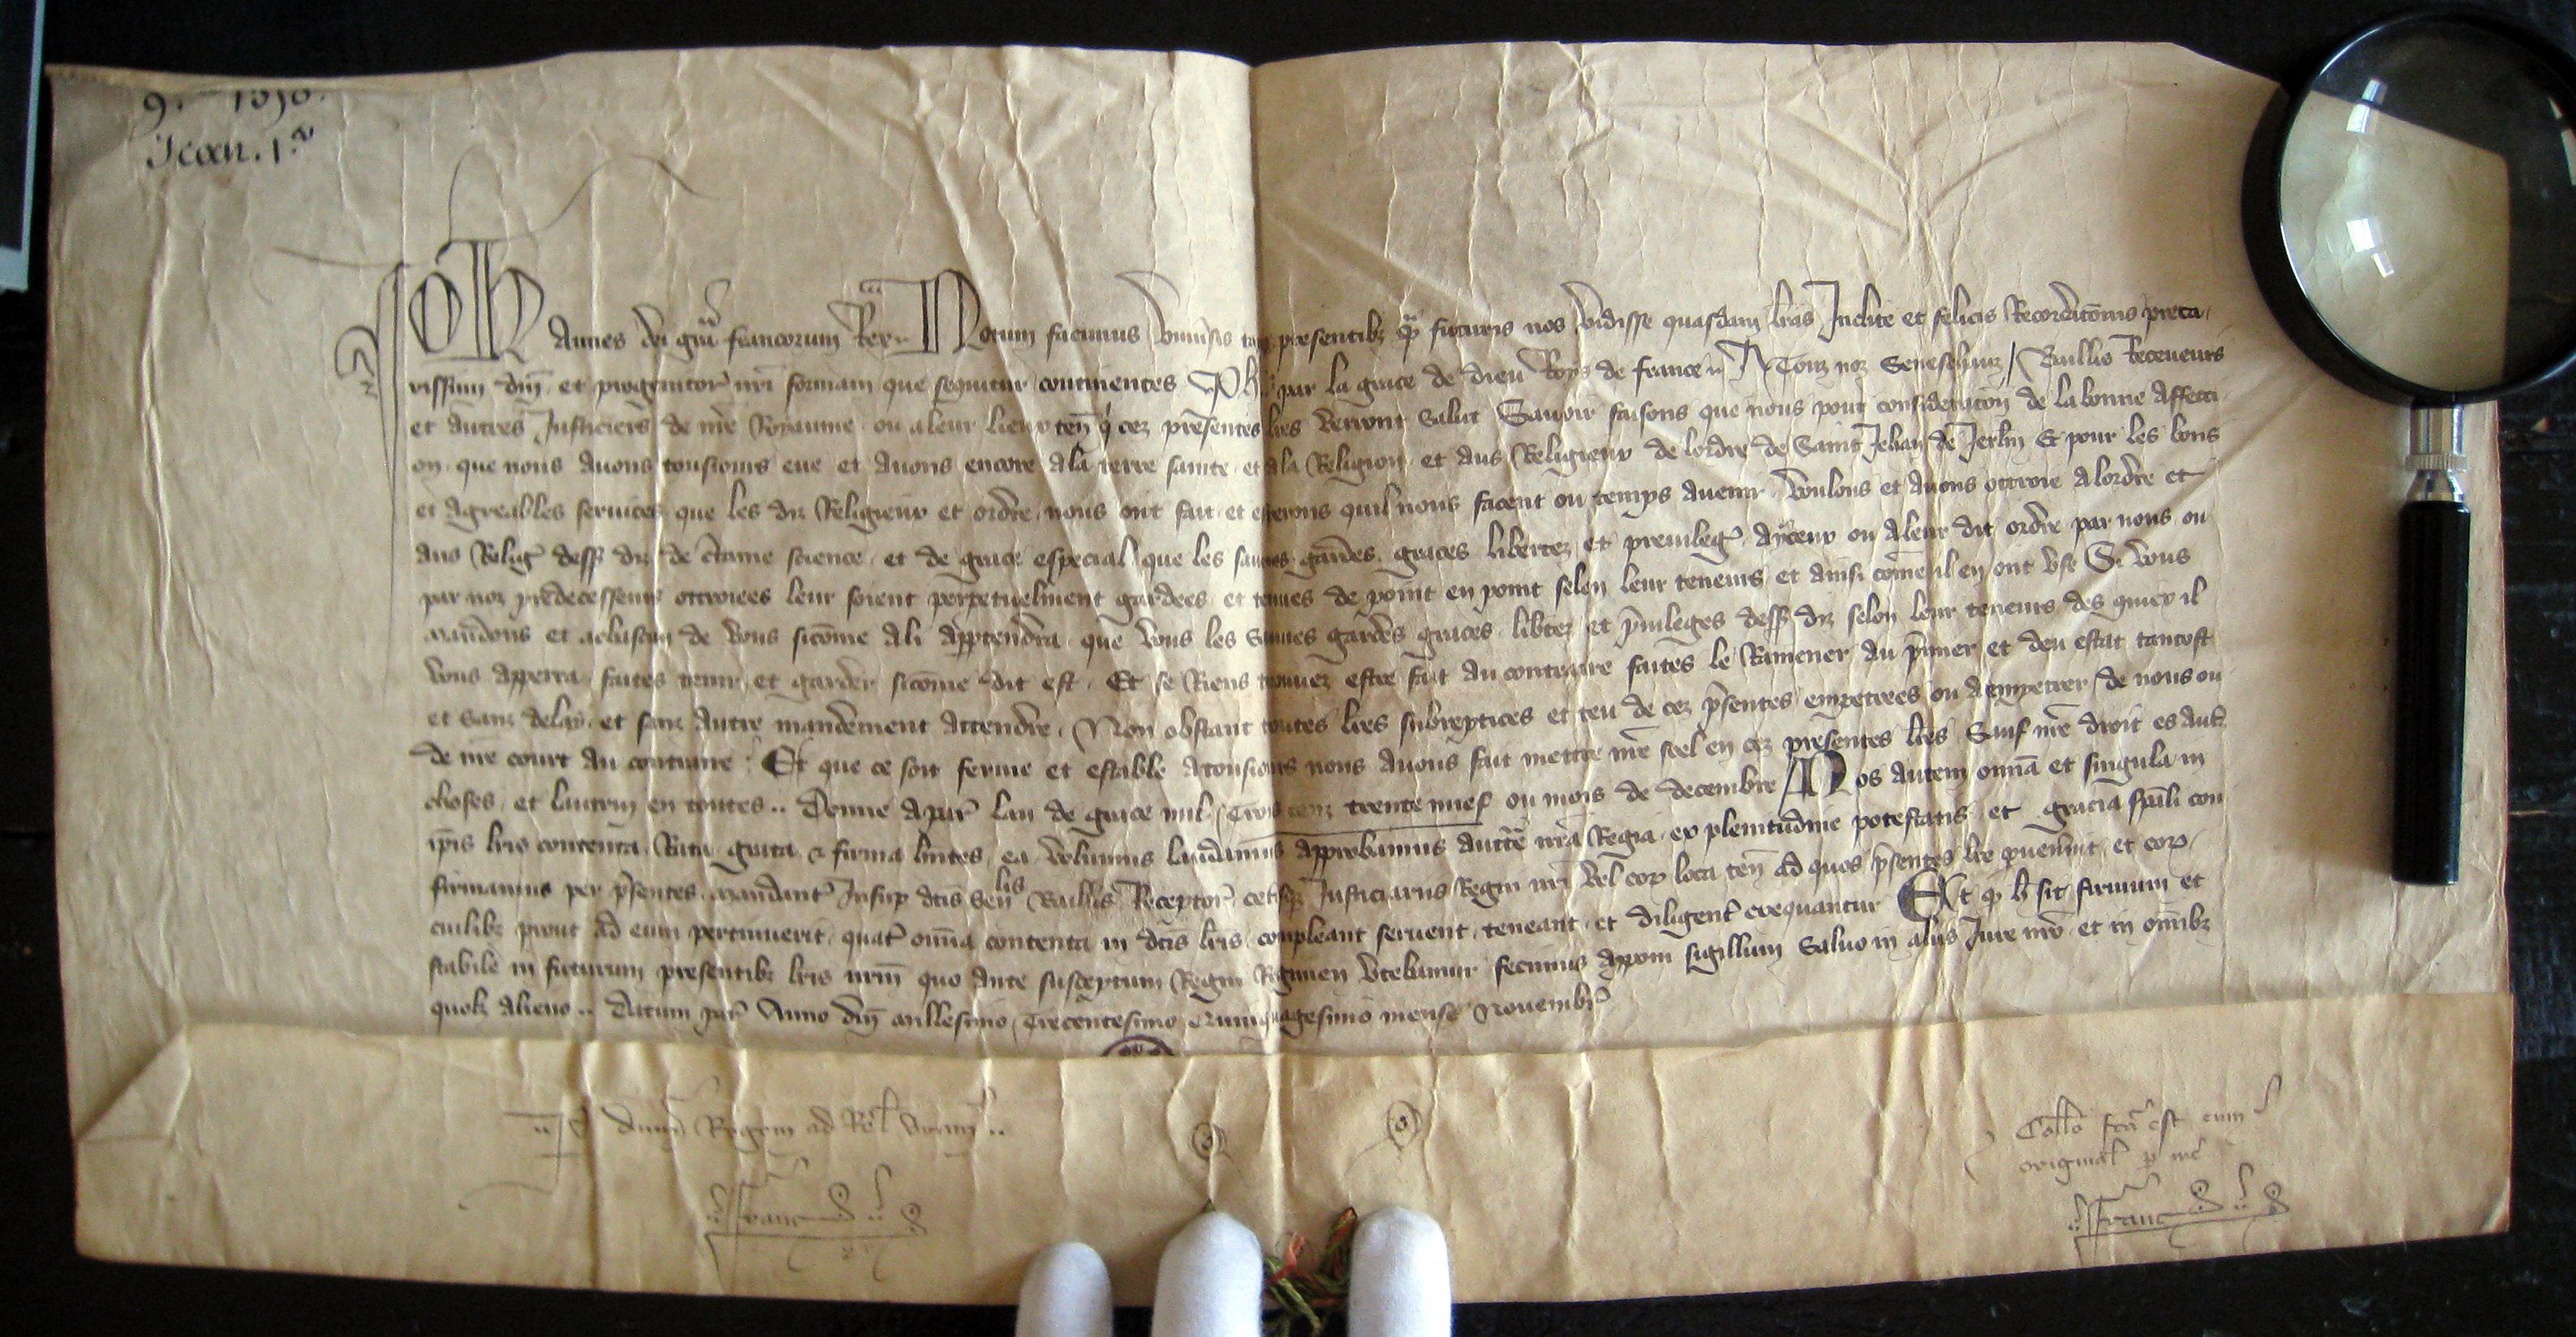 9. 1350.
Jean. 1.er
Johannes dei gra francorum Rex Notum facimus vniusis tam presentibz q futuris nos vidisse quasdam lras Inclite et felicis Recordacionis preca
rissimi dni et progenitor nri formam que sequitur continentes Ph par la grace de dieu Roys de france A Touz noz Seneschaux / Baillis Receueurs
et autres Justiciers de nre Royaume ou a leur lieux ten q cez presentes lres verront Salut Sauoir faisons que nous pour consideracion de la bonne affecci
on que nous auons tousiours eue et auons encore a la terre sainte et a la Religion et aus Religieux de lordre de Saint Jehan de Jerlm Et pour les bons
et agreables seruices que les diz Religieux et ordre nous ont fait et esperons quil nous facent ou temps auenir voulons et auons ottroie a lordre et
aus Relig dess diz de ctaine science et de grace especial que les sauues gardes graces libertez et preuileg a yceux ou a leur dit ordre par nous ou
par noz predecesseurs ottroiees leur soient perpetuelment gardees et tenues de point en point selon leur teneurs et ainsi come il en ont vse Si vous
mandons et a chascun de vous sicome a li appartendra que vous les Sauues gardes graces libtez et priuileges dess diz selon leur teneurs des quiex il
vous apperra faites tenir et garder sicome dit est Et se Riens trouuez estre fait au contraire faites le Ramener au pimer et deu estat tantost
et sanz delay et sanz autre mandement attendre Non obstant toutes lres subreptices et teu de cez psentes empetrees ou a empetrer de nous ou
de nre court au contraire Et que ce soit ferme et estable a tousiours nous auons fait mettre nre seel en cez presentes lres Sauf nre droit es aut
choses et lautrui en toutes Donne a par lan de grace mil trois cenz trente nuef ou mois de decembre Nos autem omnia et singula in
ipis lris contenta Rata grata & firma hntes ea volumus laudamus approbamus aucte nra Regia ex plenitudine potestatis et gracia spali con
firmamus per psentes mandant Insup dcis Senlis Baillis Receptor cetisqz Justiciariis Regni nri vel eor loca ten ad quos psentes lre puenint et eor
cuilibz prout ad eum pertinuerit quat omia contenta in dcis lris compleant seruent teneant et diligent exequantur Et q h sit firmum et
stabile in futurum presentibz lris nrm quo ante susceptum Regni Regimen vtebamur fecimus apponi sigillum Saluo in aliis Jure nro et in omibz
quolz alieno Datum par Anno dni millesimo Trecentesimo Quinquagesimo mense Nouembr
P dnum Regem ad Rel
Franc
Collo fca est cum
original p me
Franc